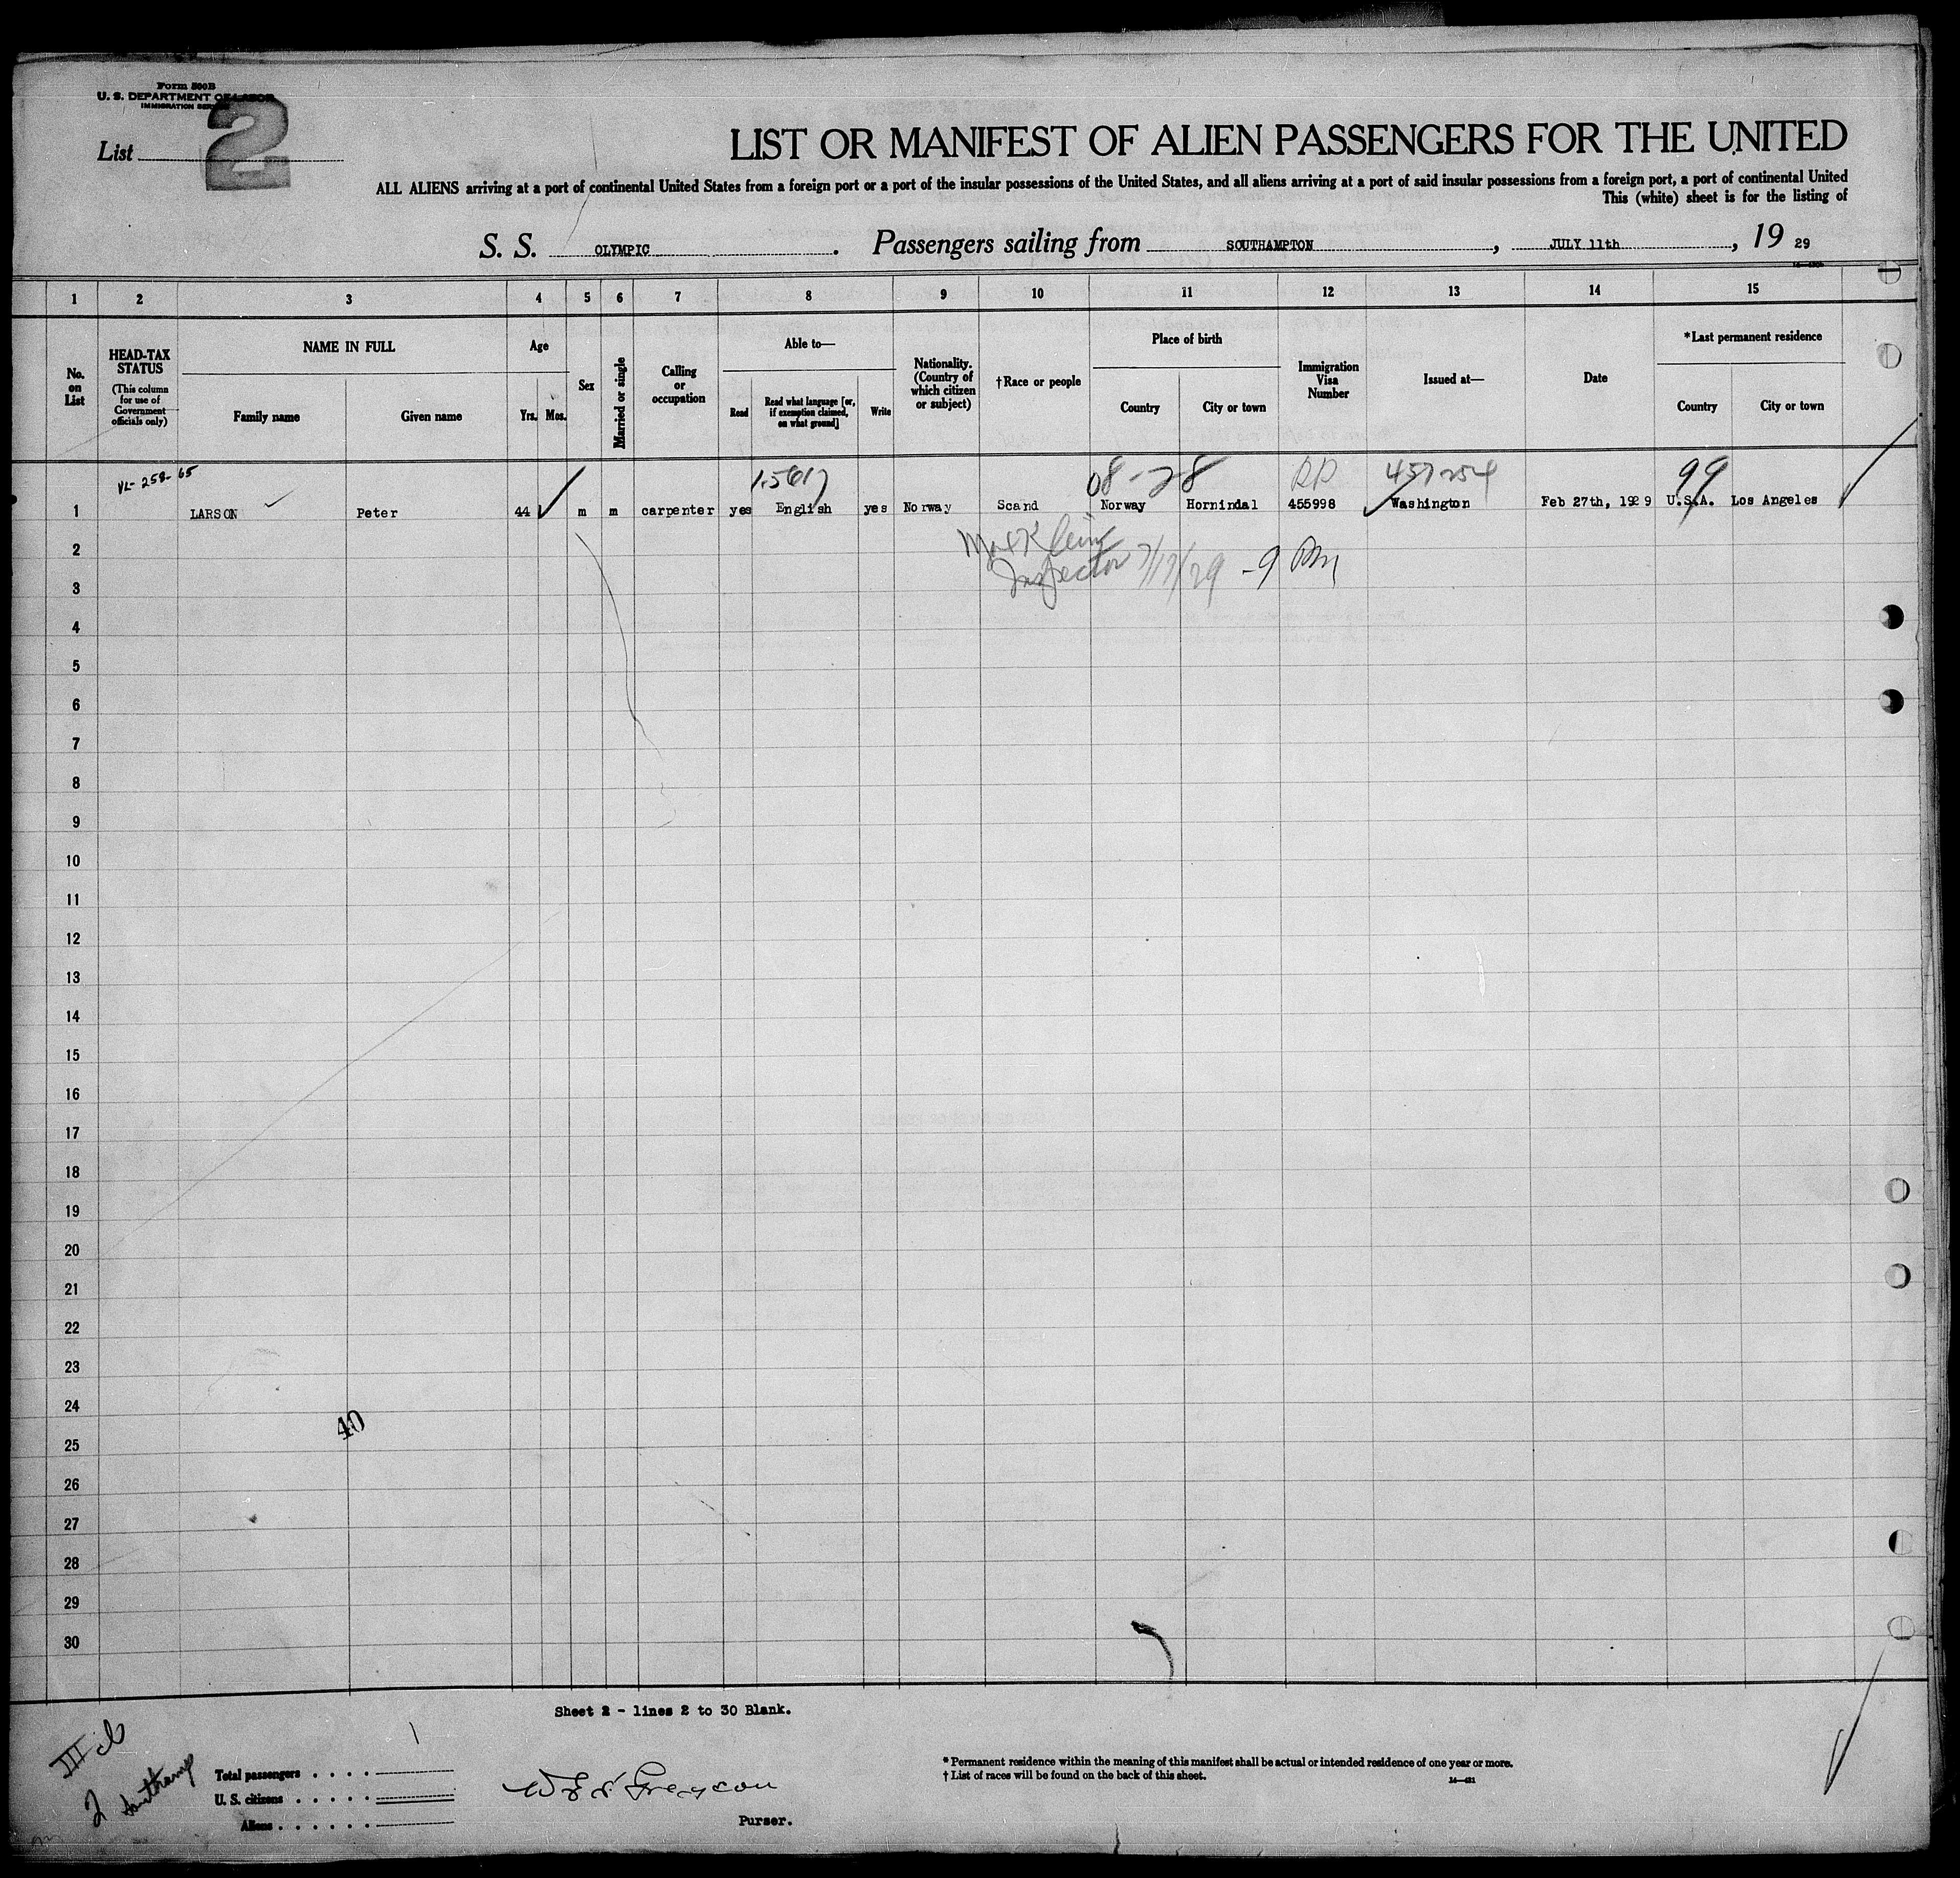 Form 500B
U. S. DEPARTMENT OF LABOR
IMMIGRATION SERVICE
List 2
LIST OR MANIFEST OF ALIEN PASSENGERS FOR THE UNITED
ALL ALIENS arriving at a port of continental United States from a foreign port or a port of the insular possessions of the United States, and all aliens arriving at a port of said insular possessions from a foreign port, a port of continental United
This (white) sheet is for the listing of
S. S. OLYMPIC. Passengers sailing from SOUTHAMPTON, JULY 11th, 19 29
1 2 3 4 5 6 7 8 9 10 11 12 13 14 15
No. on List
HEAD-TAX STATUS
(This column for use of Government officials only)
NAME IN FULL
Family name
Given name
Age
Yrs. Mos.
Sex
Married or single
Calling or occupation
Able to—
Read
Read what language [or, if exemption claimed, on what ground]
Write
Nationality. (Country of which citizen or subject)
†Race or people
Place of birth
Country
City or town
Immigration Visa Number
Issued at—
Date
*Last permanent residence
Country
City or town
VL-258-65 08-28 RP 457254 99
1 LARSON Peter 44 m m carpenter yes English yes Norway Scand Norway Hornindal 455998 Washington Feb 27th, 1929 U.S.A. Los Angeles
2
Inspector 7/17/29 -9 PM
3
4
5
6
7
8
9
10
11
12
13
14
15
16
17
18
19
20
21
22
23
24
40
25
26
27
28
29
30
Sheet 2 - lines 2 to 30 Blank.
2 Southamp
1
Total passengers . . . .
U. S. citizens . . . . .
Aliens . . . . . .
Purser.
* Permanent residence within the meaning of this manifest shall be actual or intended residence of one year or more.
† List of races will be found on the back of this sheet.
14—421